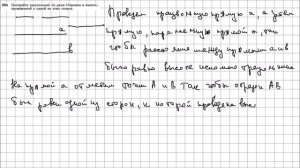 284 Постройте треугольник по двум сторонам и высоте, проведенной к одной из этих сторон.
Проведем произвольную прямую a, а затем
a
прямую, параллельную прямой a, так
чтобы расстояние между прямыми a и b
b
было равно высоте искомого треугольника
На прямой a отметим точки A и B так чтобы отрезок AB
был равен одной из сторон, к которой проведена высота